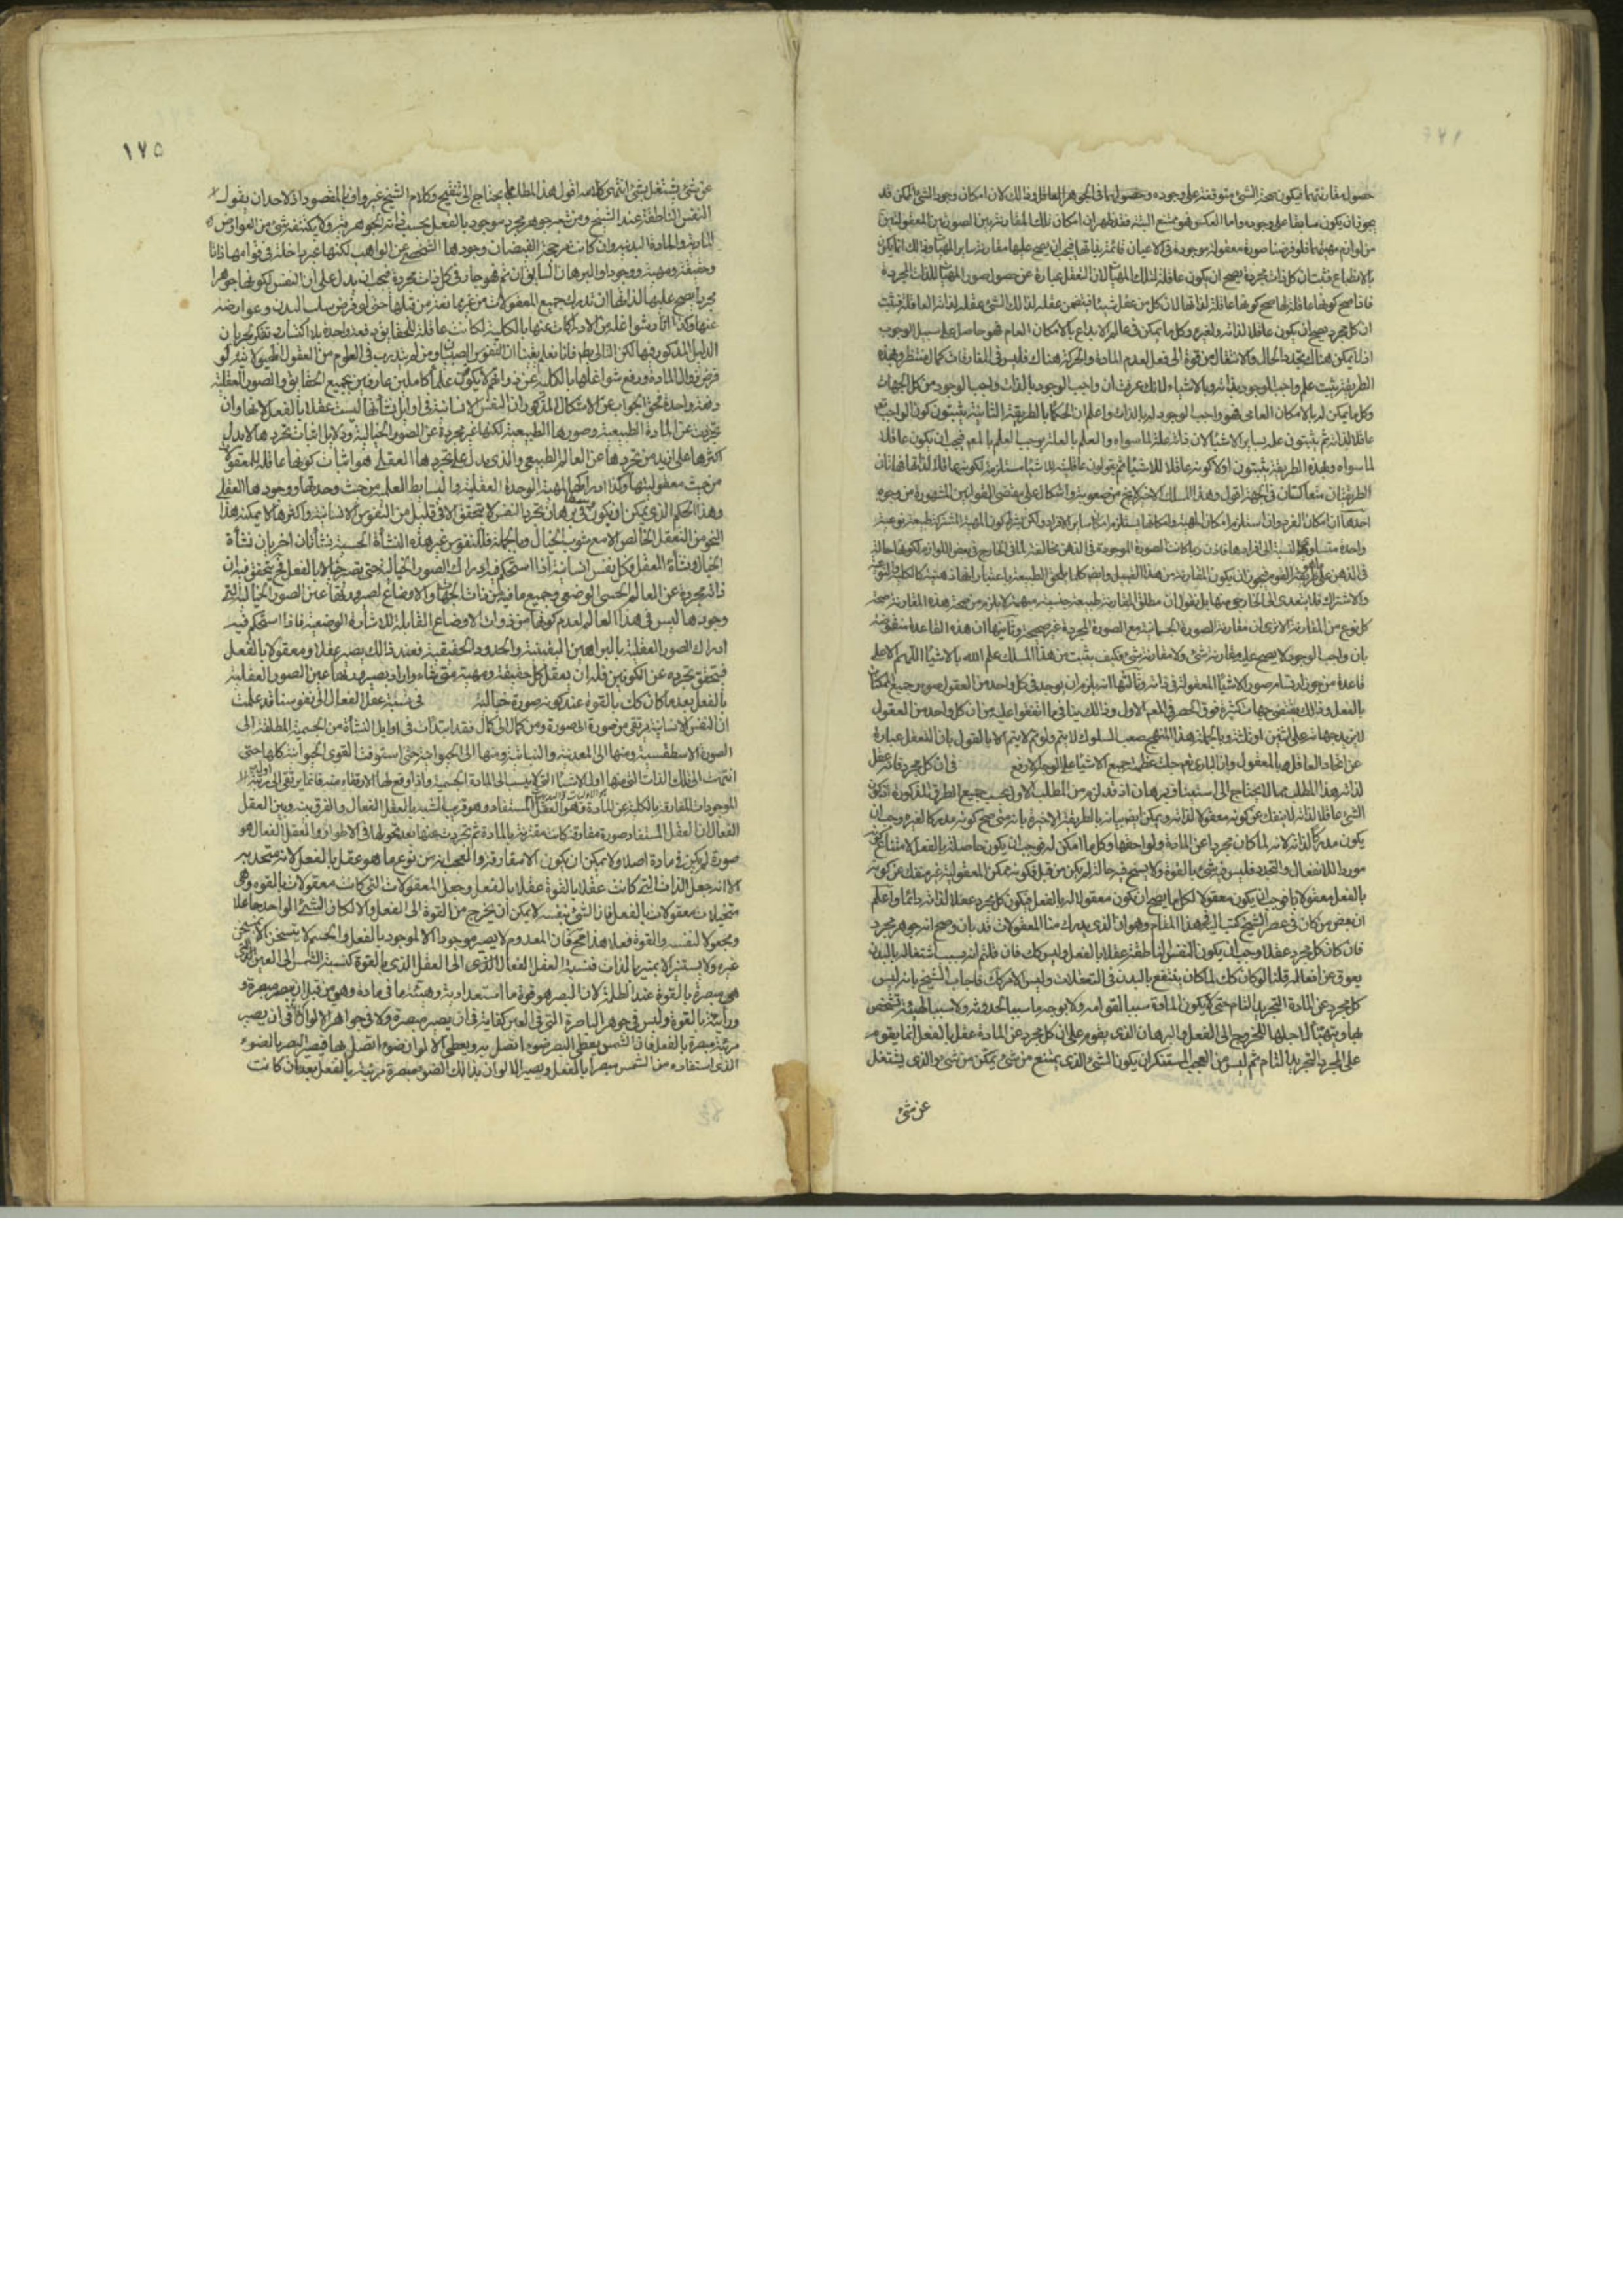 حصوله مقارنتهما فيكون صحة الشئ متوقفة على وجوده وحصولهما فى الجوهر العاقل وذلك لان امكان وجود الشئ الممكن قد
يجوز ان يكون سابقا على وجوده واما العكس فهو ممتنع البتة فقد ظهر ان امكان تلك المقارنة بين الصورتين المعقولتين
من لوازم مهيتهما فلو فرضنا صورة معقولة موجودة فى الاعيان قائمة بذاتها فيجب ان يصح عليها مقارنة ساير المهيات وذلك انما يكون
بالانطباع فثبت ان كل ذات مجردة يصح ان يكون عاقلة لتلك المهيات لان التعقل عبارة عن حصول صور المهيات للذات المجردة
فاذا صح كونها عاقلة لها صح كونها عاقلة لذاتها لان كل من عقل شيئا فيتضمن عقله لذلك الشئ عقله لذاته العاقلة فثبت
ان كل مجرد يصح ان يكون عاقلا لذاته ولغيره وكل ما يمكن فى عالم الابداع بالامكان العام فهو حاصل على سبيل الوجوب
اذ لا يمكن هناك تجدد الحال والانتقال من قوة الى فعل لعدم المادة والحركة هناك فليس فى المفارقات كمال منتظر وبهذه
الطريقة يثبت علم واجب الوجود بذاته وبالاشياء لانك عرفت ان واجب الوجود بالذات واجب الوجود من كل الجهات
وكل ما يمكن له بالامكان العامى فهو واجب الوجود له بالذات واعلم ان الحكما بالطريقة الثانية يثبتون كون الواجب تع
عاقلا لذاته ثم يثبتون علمه بساير الاشيا لان ذاته علة لما سواه والعلم بالعلة يوجب العلم بالمع فيجب ان يكون عاقلا
لما سواه وبهذه الطريقة يثبتون اولا كونه عاقلا للاشيا ثم يقولون عاقليته للاشيا مستلزمة لكونه عاقلا لذاته فهاتان
الطريقتان متعاكستان فى النهج اقول وهذا المسلك الاخير لا يخ من صعوبة واشكال على مقتضى القوانين المشهورة من وجوه
احدها ان امكان الفرد وان استلزم امكان المهية وامكانها يستلزم امكان ساير الافراد ولكن بشرط كون المهية المشتركة طبيعة نوعية
واحدة متساوية النسبة الى افرادها فاذن ربما كانت الصورة الموجودة فى الذهن مخالفة لما فى الخارج فى بعض اللوازم لكونها حالة
والاشتراك فلا يتعدى الى الخارجى منها بل نقول ان مطلق المقارنة طبيعة جنسية مبهمة لا يلزم من صحة هذه المقارنة صحة
كل نوع من المقارنة الا ترى ان مقارنة الصورة الجسمانية مع الصورة المجردة غير صحيحة وثانيها ان هذه القاعدة منقوضة
بان واجب الوجود لا يصح عليه مقارنة شئ ولا مقارنة شئ فكيف يثبت من هذا المسلك علم الله بالاشيا اللهم الا على
قاعدة من جوز ارتسام صور الاشيا المعقولة فى ذاته وثالثها انه يلزم ان يوجد فى كل واحد من العقول صور جميع الممكنات
بالفعل وذلك يقتضى جهات كثيرة فوق الحصر فى المع الاول وذلك ينافى ما اتفقوا عليه من ان كل واحد من العقول
لا يزيد جهاته على اثنين او ثلثة وبالجملة هذا المنهج صعب السلوك لا يتم ولو تم لا يتم الا بالقول بان التعقل عبارة
عن اتحاد العاقل بالمعقول وان البارى جلت عظمته جميع الاشيا على الوجه الارفع فى ان كل مجرد فانه عقل
لذاته هذا المطلب مما لا يحتاج الى استيناف برهان اذ قد لزم من المطلب الاول بحسب جميع الطرق المذكورة اذ كون
الشئ عاقلا لذاته لا ينفك عن كونه معقولا لذاته ويمكن ايضا بيانه بالطريقة الاخيرة بانه متى صح كونه مدركا لغيره وجب ان
يكون مدركا لذاته لانه لما كان مجردا عن المادة ولواحقها وكل ما امكن له فوجب ان يكون حاصلة بالفعل لامتناع كونه
موردا للانفعال والتجدد فليس فيه شئ بالقوة ولا يسنح فيه حالة لم يكن من قبل فكونه ممكن المعقولية غير منفك عن كونه
بالفعل معقولا فاذا وجب ان يكون معقولا لكل ما يصح ان يكون معقولا له بالفعل فيكون كل مجرد عقلا لذاته دائما واعلم
ان بعض من كان فى عصر الشيخ كتب اليه فى هذا المقام وهو ان الذى يدرك منا المعقولات قد بان وصح انه جوهر مجرد
فان كان كل مجرد عقلا وجب ان يكون النفس الناطقة عقلا بالفعل وليس كك فان قلتم انه بسبب اشتغاله بالبدن
يعوق عن افعاله قلنا لو كان كك لما كان ينتفع بالبدن فى التعقلات وليس الامر كك فاجاب الشيخ بانه ليس
كل مجرد عن المادة التجريد التام حتى لا يكون المادة سببا لقوامه ولا بوجه ما سببا لحدوثه ولا سببا لهيئة تتشخص
بها ويتهيا لاجلها للخروج الى الفعل والبرهان الذى يقوم على ان كل مجرد عن المادة عقل بالفعل انما يقوم
على المجرد التجريد التام ثم ليس من العجب المستنكر ان يكون الشئ الذى يمتنع من شئ يمكن من شئ والذى يشتغل
عن شئ
١٧٥
عن شئ يشتغل بشئ انتهى كلامه اقول هذا المطلب مما يحتاج الى تنقيح وكلام الشيخ غير واف بالمقصود اذ لاحد ان يقول
النفس الناطقة عند الشيخ ومن تبعه جوهر مجرد موجود بالفعل بحسب ذاته الجوهرية ولا يكتنفه شئ من العوارض
المادية والمادة البدنية وان كانت مرجحة لفيضان وجودها الشخصى عن الواهب لكنها غير داخلة فى قوامها ذاتا
وحقيقة ومهية ووجودا والبرهان السابق ان تم فهو جار فى كل ذات مجردة فيجب ان يدل على ان النفس لكونها جوهرا
مجردا يصح عليها لذاتها ان تدرك جميع المعقولات من غير ممانعة من قبلها حتى لو فرض سلب البدن وعوارضه
عنها وكذا اثار شواغله من الادراكات عنها بالكلية لكانت عاقلة للحقايق دفعة واحدة بلا اكتساب وتفكر لجريان
الدليل المذكور فيها لكن التالى بط فانا نعلم يقينا ان النفوس الصبيان ومن لم يتدرب فى العلوم من العقول الهيولانية لو
فرض زوال المادة ورفع شواغلها بالكلية عن ذواتهم لا يكونون علماء كاملين عارفين بجميع الحقايق والصور العقلية
دفعة واحدة فحق الجواب عن الاشكال المذكور ان النفس الانسانية فى اوايل نشأتها ليست عقلا بالفعل لانها وان
تجردت عن المادة الطبيعية وصورها الطبيعية لكنها غير مجردة عن الصور الخيالية ودلايل اثبات تجردها لا يدل
اكثرها على ازيد من تجردها عن العالم الطبيعى والذى يدل على تجردها العقلى فهو اثبات كونها عاقلة للمعقولات
من حيث معقوليتها وكذا ادراكها المهية الوحدة العقلية والبسايط العلمية من حيث وحدتها ووجودها العقلى
النحو من التعقل الخالص الا مع شوب الخيال وبالجملة فللنفوس غير هذه النشأة الحسية نشأتان اخريان نشأة
الخيال ونشأة العقل فكل نفس انسانية اذا استحكم فيها ادراك الصور الخيالية حتى يصير خيالا بالفعل فح يتحقق فيه ان
ذاته مجردة عن العالم الحسى الوضعى وجميع ما فيه من ذوات الجهات والاوضاع لصيرورتها عين الصور الخيالية التى
وجودها ليس فى هذا العالم لعدم كونها من ذوات الاوضاع القابلة للاشارة الوضعية فاذا استحكم فيه
ادراك الصور العقلية بالبراهين اليقينية والحدود الحقيقية فعند ذلك يصير عقلا ومعقولا بالفعل
فيتحقق تجرده عن الكونين فله ان يعقل كل حقيقة ومهية متى شاء واراد لصيرورتها عين الصور العقلية
بالفعل بعد ما كان كك بالقوة عند كونه صورة خيالية فى نسبة عقل الفعال الى نفوسنا قد علمت
ان النفس الانسانية ترتقى من صورة الى صورة ومن كمال الى كمال فقد ابتدأت فى اوايل النشأة من الجسمية المطلقة الى
الصورة الاسطقسية ومنها الى المعدنية والنباتية ومنها الى الحيوانية حتى استوفت القوى الحيوانية كلها حتى
انتهت الى تلك الذات التى منها اول الاشيا التى لا ينسب الى المادة الجسمية واذا وقع لها الارتقاء منه فانما يرتقى الى اول رتبة
الموجودات المفارقة بالكلية عن المادة وهو العقل المستفاد وهو قريب الشبه بالعقل الفعال والفرق بينه وبين العقل
الفعال ان العقل المستفاد صورة مفارقة كانت مقترنة بالمادة ثم تجردت عنها بعد تحولها فى الاطوار والعقل الفعال هو
صورة لم يكن فى مادة اصلا ولا يمكن ان يكون الا مفارقة
الا انه جعل الذات التى كانت عقلا بالقوة عقلا بالفعل وجعل المعقولات التى كانت معقولات بالقوة وهى
متخيلات معقولات بالفعل فان الشئ بنفسه لا يمكن ان يخرج من القوة الى الفعل والا لكان الشئ الواحد جاعلا
ومجعولا لنفسه والقوة فعلا هذا مح فان المعدوم لا يصير موجودا الا لموجود بالفعل والجسم لا يتسخن الا بمسخن
غيره ولا يستنير الا بمنير بالذات فنسبة العقل الفعال الى العقل الذى بالقوة كنسبة الشمس الى العين التى
هى مبصرة بالقوة عند الظلمة لان البصر هو قوة ما استعدادية وهيئة ما فى مادة وهى من قبل ان تبصر مبصرة و
ورائية بالقوة وليس فى جوهر الباصرة التى فى العين كفاية فى ان يصير مبصرة ولا فى جواهر الالوان كفاية فى ان يصير
مرئية مبصرة بالفعل فان الشمس يعطى البصر ضوء اتصل به ويعطى الالوان ضوء اتصل بها فيصير البصر بالضوء
الذى استفاده من الشمس مبصرا بالفعل ويصير الالوان بذلك الضوء مبصرة مرئية بالفعل بعد ان كانت